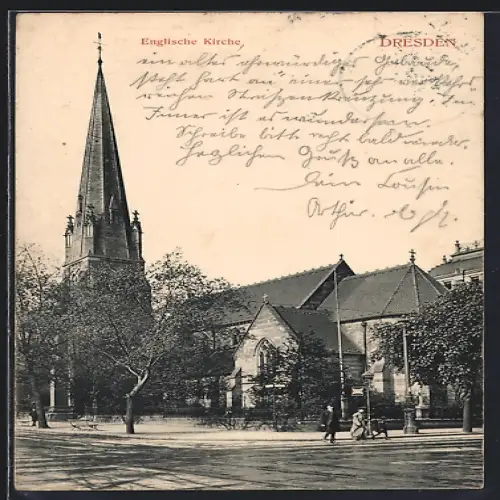 Englische Kirche
DRESDEN
ein altes ehrwürdiges Gebäude,
steht hart an einer sehr verkehrs
reichen Straßenkreuzung. Im
Innern ist es wundersam.
Schreibe bitte recht bald wieder.
Herzlichen Gruß an alle.
Dein Cousin
Arthur.